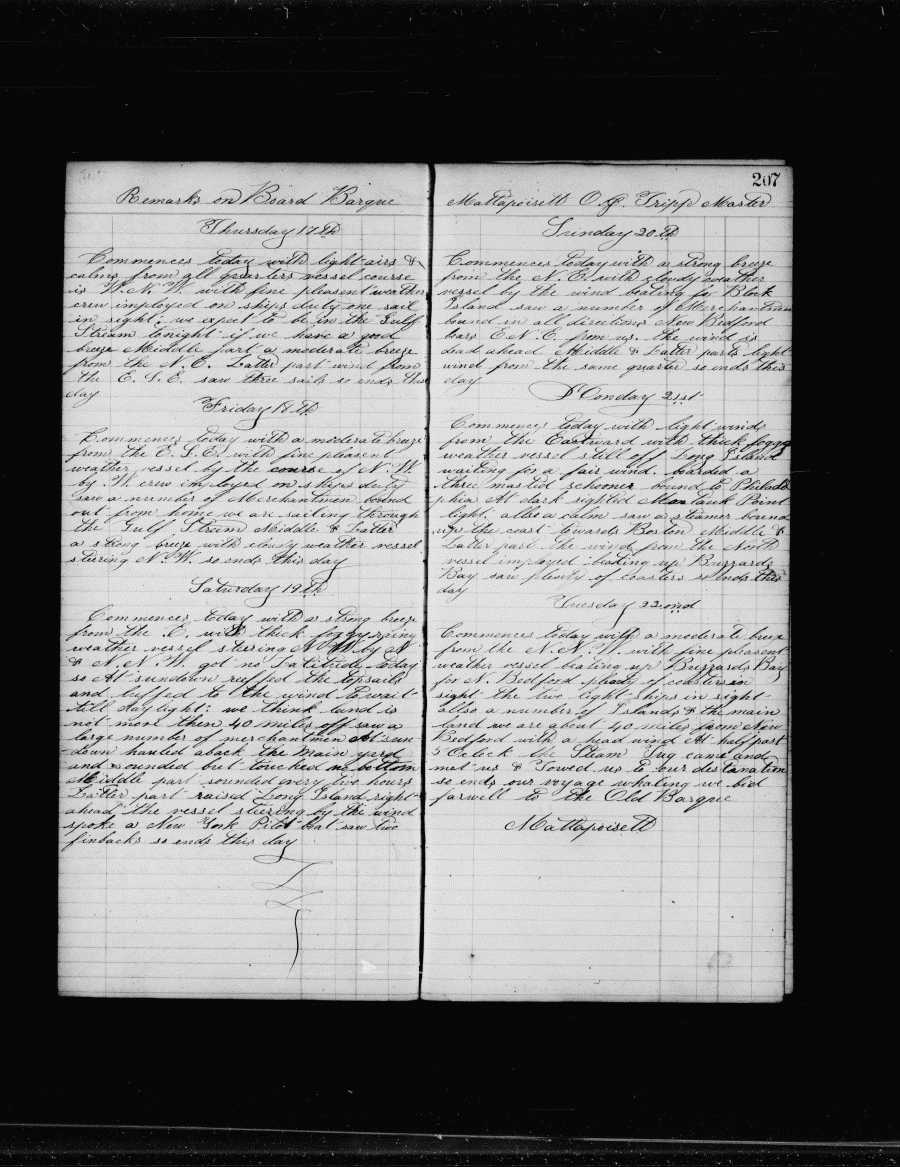 Remarks on Board Barque
Thursday 17th
Commences today with light airs &
calms from all quarters vessel course
is W.N.W. with fine pleasent weather
crew imployed on ships duty one sail
in sight: we expect to be in the Gulf
Stream tonight if we have a good
breze Middle part a moderate breeze
from the N.E. Latter part wind from
the E.S.E. saw three sails so ends this
day
Friday 18th
Commences today with a moderate breeze
from the E.S.E. with fine pleasent
weather vessel by the course of N.W.
by W crew imployed on ships duty
saw a number of Merchantmen bound
out from home we are sailing through
the Gulf Strum Middle & Latter
a strong breze with cloudy weather vessel
steering N.W. so ends this day
Saturday 19th
Commences today with a strong breeze
from the E. with thick foggy rainy
weather vessel steering N W by N
& N.N.W. got no Latitude today
so At sundown ruffed the topsails
and luffed to the wind to wait
till daylight: we think land is
not more then 40 miles off saw a
large number of merchantmen At sun
down hauled aback the Main yard
and sounded but touched no bottom
Middle part sounded every two hours
Latter part raised Long Island right
ahead the vessel steering by the wind
spoke a New York Pilot boat saw two
finbacks so ends this day
207
Mattapoisett O. Tripp Master
Sunday 20th
Commences today with a strong breeze
from the N.E. with cloudy weather
vessel by the wind beating for Block
Island saw a number of Merchantmen
bound in all directions New Bedford
bears E.N.E. from us. the wind is
dead ahead Middle & Latter parts light
wind from the same quarter so ends this
day
Monday 21st
Commences today with light winds
from the Eastward with thick foggy
weather vessel still off Long Island
waiting for a fair wind. boarded a
three masted schooner bound to Philadel
phia At dark sighted Mon tauk Point
light. allso a calm saw a steamer bound
up the coast towards Boston Middle &
Latter part the wind from the North
vessel imployed beating up Buzzards
Bay saw plenty of coasters so ends this
day
Tuesday 22ond
Commences today with a moderate breeze
from the N.N.W. with fine pleasent
weather vessel beating up Buzzards Bay
for N. Bedford plenty of coasters in
sight the two light ships in sight
allso a number of Islands & the main
land we are about 40 miles from New
Bedford with a head wind At half past
5 Oclock the Steam Tug came and
met us & Towed us to our destanation
so ends our voyage whaling we bid
farwell to the Old Barque
Mattapoisett